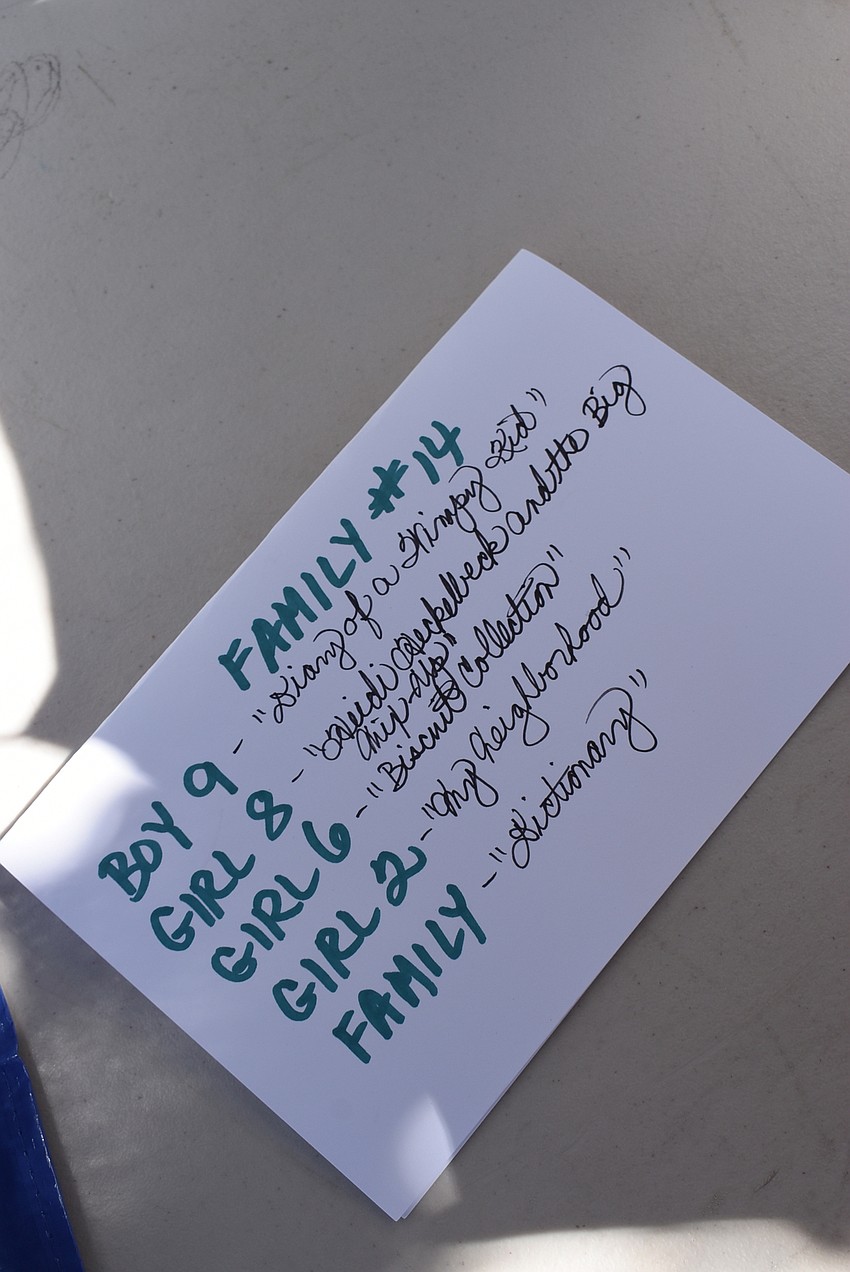 FAMILY #14
BOY 9 - "Diary of a Wimpy Kid"
GIRL 8 - "Heidi Heckelbeck and the Big
Mix-Up"
GIRL 6 - "Biscuit Collection"
GIRL 2 - "My Neighborhood"
FAMILY - "Dictionary"